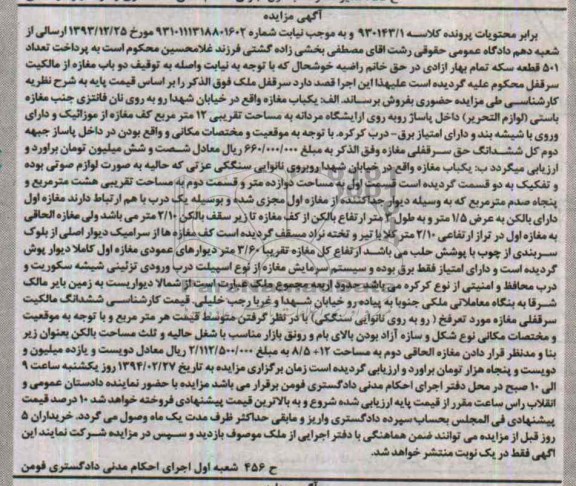 آگهی مزایده
برابر محتویات پرونده کلاسه ۹۳۰۱۴۳/۱ و به موجب نیابت شماره ۹۳۱۰۱۱۱۳۱۸۸۰۱۶۰۲ مورخ ۱۳۹۳/۱۲/۲۵ ارسالی از
شعبه دهم دادگاه عمومی حقوقی رشت اقای مصطفی بخشی زاده گشتی فرزند غلامحسین محکوم است به پرداخت تعداد
۵۰۱ قطعه سکه تمام بهار ازادی در حق خانم راضیه خوشحال که با توجه به نیابت واصله به توقیف دو باب مغازه از مالکیت
سرقفل محکوم علیه گردیده است علیهذا این اجرا قصد دارد سرقفل ملک فوق الذکر را بر اساس قیمت پایه به شرح نظریه
کارشناسی طی مزایده حضوری بفروش برساند. الف: یکباب مغازه واقع در خیابان شهدا رو به روی نان فانتزی جنب مغازه
باستی (لوازم التحریر) داخل پاساژ روبه روی ارایشگاه مردانه به مساحت تقریبی ۱۲ متر مربع کف مغازه از موزائیک و دارای
وروی با شیشه بند و دارای امتیاز برق- درب کرکره. با توجه به موقعیت و مختصات مکانی و واقع بودن در داخل پاساژ جبهه
دوم کل ششدانگ حق سرقفلی مغازه وفق الذکر به مبلغ ۶۶۰/۰۰۰/۰۰۰ ریال معادل شصت و شش میلیون تومان براورد و
ارزیابی میگردد ب: یکباب مغازه واقع در خیابان شهدا روبروی نانوایی سنگکی عزتی که حالیه به صورت لوازم صوتی بوده
و تفکیک به دو قسمت گردیده است قسمت اول به مساحت دوازده متر و قسمت دوم به مساحت تقریبی هشت مترمربع و
پنجاه صدم مترمربع که به وسیله دیوار جداکننده از مغازه اول مجزی شده و بوسیله یک درب با هم ارتباط دارند مغازه اول
دارای بالکن به عرض ۱/۵ متر و به طول ۴ متر ارتفاع بالکن از کف مغازه تا زیر سقف بالکن ۲/۱۰ متر می باشد ولی مغازه الحاقی
به مغازه اول در تراز ارتفاعی ۲/۱۰ متر کلا با تیر و تخته نراد مسقف گردیده است کف مغازه ها از سرامیک دیوار اصلی از بلوک
سربندی از چوب با پوشش حلب می باشد ارتفاع کل مغازه تقریبا ۳/۶۰ متر دیوارهای عمودی مغازه اول کاملا دیوار پوش
گردیده است و دارای امتیاز فقط برق بوده و سیستم سرمایش مغازه از نوع اسپیلت درب ورودی تزئینی شیشه سکوریت و
درب محافظ و امنیتی از نوع کرکره می باشد حدود اربعه مجموع ملک عبارت است از شمالا دیواریست به زمین بایر مالک
شرقا به بنگاه معاملاتی ملکی جنوبا به پیاده رو خیابان شهدا و غربا رجب خلیلی. قیمت کارشناسی ششدانگ مالکیت
سرقفلی مغازه مورد تعرفخ ( رو به روی نانوایی سنگکی) با در نظر گرفتن متوسط قیمت هر متر مربع و با توجه به موقعیت
و مختصات مکانی نوع شکل و سازه آزاد بودن بالای بام و رونق بازار متناسب با شغل حالیه و ثلث مساحت بالکن بعنوان زیر
بنا و مدنظر قرار دادن مغازه الحاقی دوم به مساحت ۱۲+ ۸/۵ به مبلغ ۲/۱۱۲/۵۰۰/۰۰۰ ریال معادل دویست و یازده میلیون و
دویست و پنجاه هزار تومان براورد و ارزیابی گردیده است زمان برگزاری مزایده به تاریخ ۱۳۹۴/۰۲/۲۷ روز یکشنبه ساعت ۹
الی ۱۰ صبح در محل دفتر اجرای احکام مدنی دادگستری فومن برقرار می باشد مزایده با حضور نماینده دادستان عمومی و
انقلاب راس ساعت مقرر از قیمت پایه ارزیابی شده شروع و به بالاترین قیمت پیشنهادی فروخته خواهد شد ۱۰ درصد قیمت
پیشنهادی فی المجلس بحساب سپرده دادگستری واریز و مابقی حداکثر ظرف مدت یک ماه وصول می گردد. خریداران ۵
روز قبل از مزایده می توانند ضمن هماهنگی با دفتر اجرایی از ملک موصوف بازدید و سپس در مزایده شرکت نمایند این
آگهی فقط در یک نوبت منتشر خواهد شد.
ح ۴۵۶ شعبه اول اجرای احکام مدنی دادگستری فومن